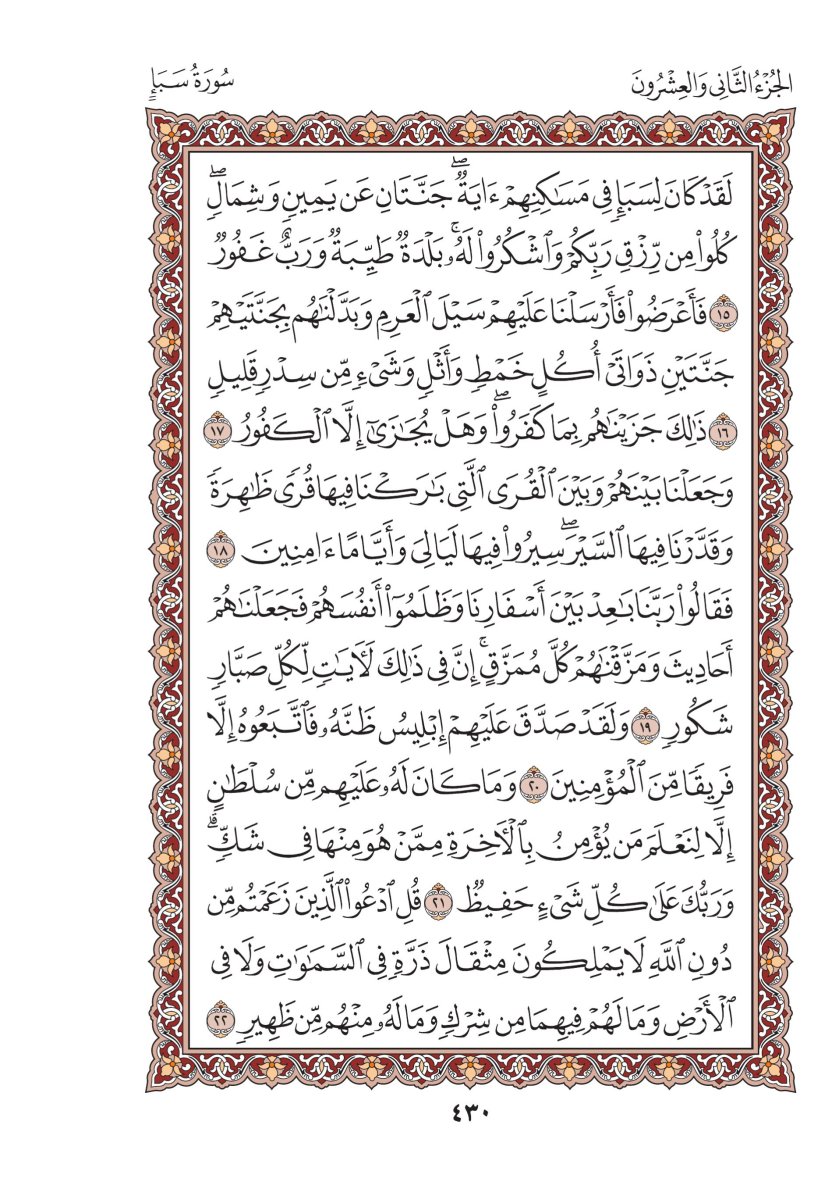 الجُزْءُ الثَّانِي وَالعِشْرُونَ
سُورَةُ سَبَإٍ
لَقَدْ كَانَ لِسَبَإٖ فِي مَسۡكَنِهِمۡ ءَايَةٞۖ جَنَّتَانِ عَن يَمِينٖ وَشِمَالٖۖ
كُلُواْ مِن رِّزۡقِ رَبِّكُمۡ وَٱشۡكُرُواْ لَهُۥۚ بَلۡدَةٞ طَيِّبَةٞ وَرَبٌّ غَفُورٞ
١٥ فَأَعۡرَضُواْ فَأَرۡسَلۡنَا عَلَيۡهِمۡ سَيۡلَ ٱلۡعَرِمِ وَبَدَّلۡنَٰهُم بِجَنَّتَيۡهِمۡ
جَنَّتَيۡنِ ذَوَاتَيۡ أُكُلٍ خَمۡطٖ وَأَثۡلٖ وَشَيۡءٖ مِّن سِدۡرٖ قَلِيلٖ
١٦ ذَٰلِكَ جَزَيۡنَٰهُم بِمَا كَفَرُواْۖ وَهَلۡ يُجَٰزَىٰٓ إِلَّا ٱلۡكَفُورُ ١٧
وَجَعَلۡنَا بَيۡنَهُمۡ وَبَيۡنَ ٱلۡقُرَى ٱلَّتِي بَٰرَكۡنَا فِيهَا قُرٗى ظَٰهِرَةٗ
وَقَدَّرۡنَا فِيهَا ٱلسَّيۡرَۖ سِيرُواْ فِيهَا لَيَالِيَ وَأَيَّامًا ءَامِنِينَ ١٨
فَقَالُواْ رَبَّنَا بَٰعِدۡ بَيۡنَ أَسۡفَارِنَا وَظَلَمُوٓاْ أَنفُسَهُمۡ فَجَعَلۡنَٰهُمۡ
أَحَادِيثَ وَمَزَّقۡنَٰهُمۡ كُلَّ مُمَزَّقٍۚ إِنَّ فِي ذَٰلِكَ لَأٓيَٰتٖ لِّكُلِّ صَبَّارٖ
شَكُورٖ ١٩ وَلَقَدۡ صَدَّقَ عَلَيۡهِمۡ إِبۡلِيسُ ظَنَّهُۥ فَٱتَّبَعُوهُ إِلَّا
فَرِيقٗا مِّنَ ٱلۡمُؤۡمِنِينَ ٢٠ وَمَا كَانَ لَهُۥ عَلَيۡهِم مِّن سُلۡطَٰنٍ
إِلَّا لِنَعۡلَمَ مَن يُؤۡمِنُ بِٱلۡأٓخِرَةِ مِمَّنۡ هُوَ مِنۡهَا فِي شَكّٖۗ
وَرَبُّكَ عَلَىٰ كُلِّ شَيۡءٍ حَفِيظٞ ٢١ قُلِ ٱدۡعُواْ ٱلَّذِينَ زَعَمۡتُم مِّن
دُونِ ٱللَّهِ لَا يَمۡلِكُونَ مِثۡقَالَ ذَرَّةٖ فِي ٱلسَّمَٰوَٰتِ وَلَا فِي
ٱلۡأَرۡضِ وَمَا لَهُمۡ فِيهِمَا مِن شِرۡكٖ وَمَا لَهُۥ مِنۡهُم مِّن ظَهِيرٖ ٢٢
٤٣٠